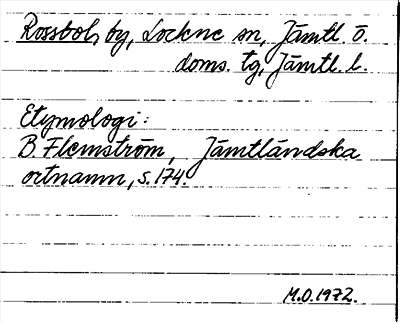 Rossbol, by, Lockne sn, Jämtl. ö.
doms. tg, Jämtl. l.
Etymologi:
B. Flemström, Jämtländska
ortnamn, s. 174.
M.O. 1972.